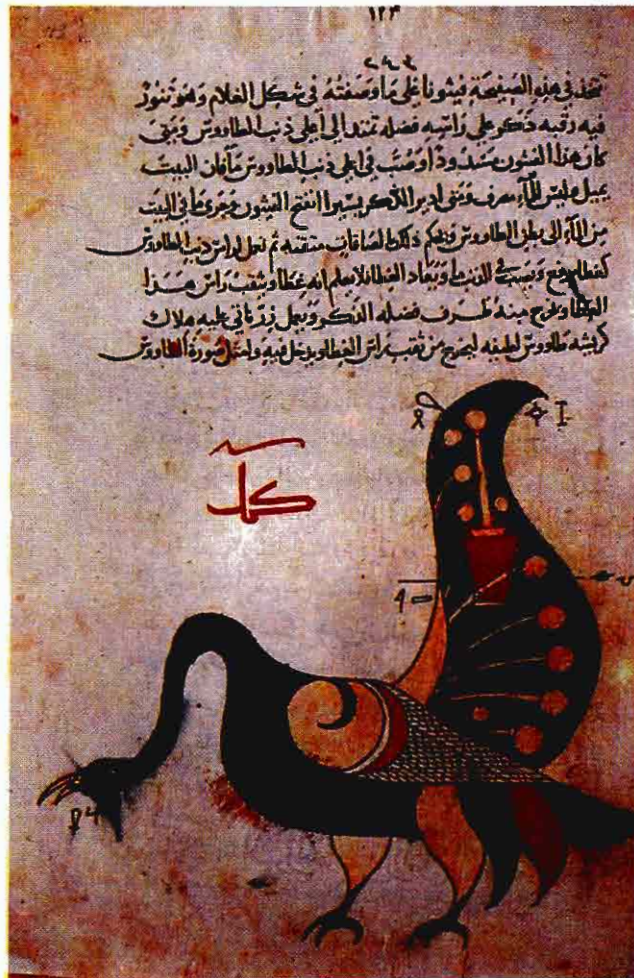 ١٢٣
يتخذ في هذه الصفيحة فيثونا على ما وصفته في شكل الغلام وهو تنور
فيه رقبه ذكر على راسه فضله تمتد الى اعلى ذنب الطاووس ومتى
كان هذا الفيثون مسدودا وصب في اعلى ذنب الطاووس ما فان البيت
يمتلى وليس للماء مصرف ومتى ادير الذكر يسيرا انفتح الفيثون وجرى ما في البيت
من الماء الى بطن الطاووس ويحكم ذلك متقنه ثم يعمل لراس ذنب الطاووس
كغطا يرفع ويصب في الذنب ما ويعاد الغطا لا يعلم انه غطا ويثقب راس هذا
الغطا ويخرج منه طرف فضله الذكر ويجعل عليه
كريشه طاووس لطيفه ليخرج من ثقب راس الغطا ويدخل فيه وامثل صورة الطاووس